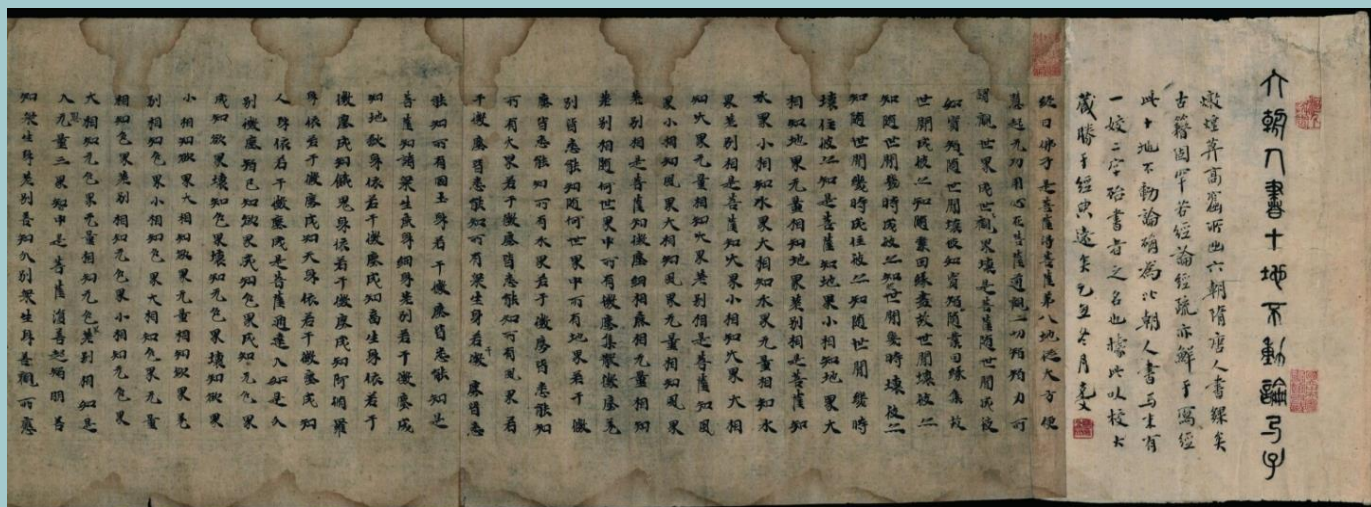 六朝人書十地不動論弓子
燉煌莫高窟所出六朝隋唐人書夥矣
古籍固罕若經論經疏亦鮮于寫經
此十地不動論确為北朝人書写末有
一㛐二字殆書者之名也據此以校大
藏勝于經典遠矣乙丑冬月
經曰佛子是菩薩得菩薩第八地從大方便
慧起无功用心在菩薩道觀一切智智力所
謂觀世界成世觀界壞是菩薩隨世間成彼
如實知隨世間壞彼如實知隨業因緣集故
世間成彼亦知隨業因緣盡故世間壞彼亦
知隨世間幾時成彼亦知世間幾時壞彼亦
知隨世間幾時成住彼亦知隨世間幾時
壞住彼亦知是菩薩知地界小相知地界大
相知地界无量相知地界差別相是菩薩知
水界小相知水界大相知水界无量相知水
界差別相是菩薩知火界小相知火界大相
知火界无量相知火界差別相是菩薩知風
界小相知風界大相知風界无量相知風界
差別相是菩薩知微塵細相麁相无量相知
差別相隨何世界中所有微塵集散微塵差
別皆悉能知隨何世界中所有地界若干微
塵皆悉能知所有水界若干微塵皆悉能知
所有火界若干微塵皆悉能知所有風界若
干微塵皆悉能知所有眾生身若干微塵皆悉
能知所有國土身若干微塵皆悉能知是
菩薩知諸眾生麁身細身差別若干微塵成
知地獄身依若干微塵成知畜生身依若干
微塵成知餓鬼身依若干微塵成知阿脩羅
身依若干微塵成知天身依若干微塵成知
人身依若干微塵成是菩薩通達入如是分
別微塵智已知欲界成知色界成知无色界
成知欲界壞知色界壞知无色界壞知欲界
小相知欲界大相知欲界无量相知欲界差
別相知色界小相知色界大相知色界无量
相知色界差別相知无色界小相知无色界
大相知无色界无量相知无色差別相如是
入无量三界知中是菩薩復善起智明善
知眾生身差別善知分別眾生身善觀所應